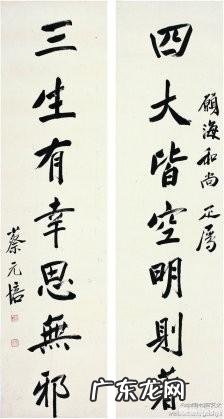 願海和尚 正屬
四大皆空明則著
三生有幸思無邪
蔡元培
广东龙网